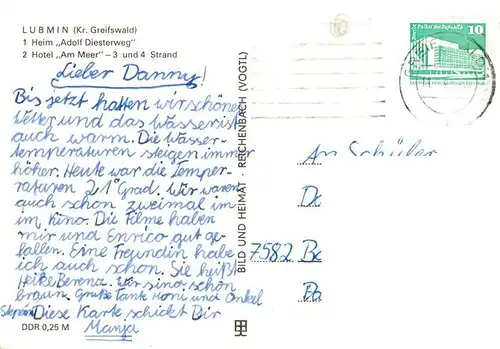 LUBMIN (Kr. Greifswald)
1 Heim „Adolf Diesterweg"
2 Hotel „Am Meer" – 3 und 4 Strand
Lieber Danny!
Bis jetzt hatten wir schönes
Wetter und das Wasser ist
auch warm. Die Wasser-
temperaturen steigen immer
höher. Heute war die Temper-
raturen 21° Grad. Wir waren
auch schon zweimal im
im Kino. Die Filme haben
mir und Enrico gut ge-
fallen. Eine Freundin habe
ich auch schon. Sie heißt
Heike Berenz. Wir sind schön
braun. Grüße Tante Moni und Onkel
Diese Karte schickt Dir
Manja
DDR 0,25 M
BILD UND HEIMAT · REICHENBACH (VOGTL)
10
An Schüler
7582